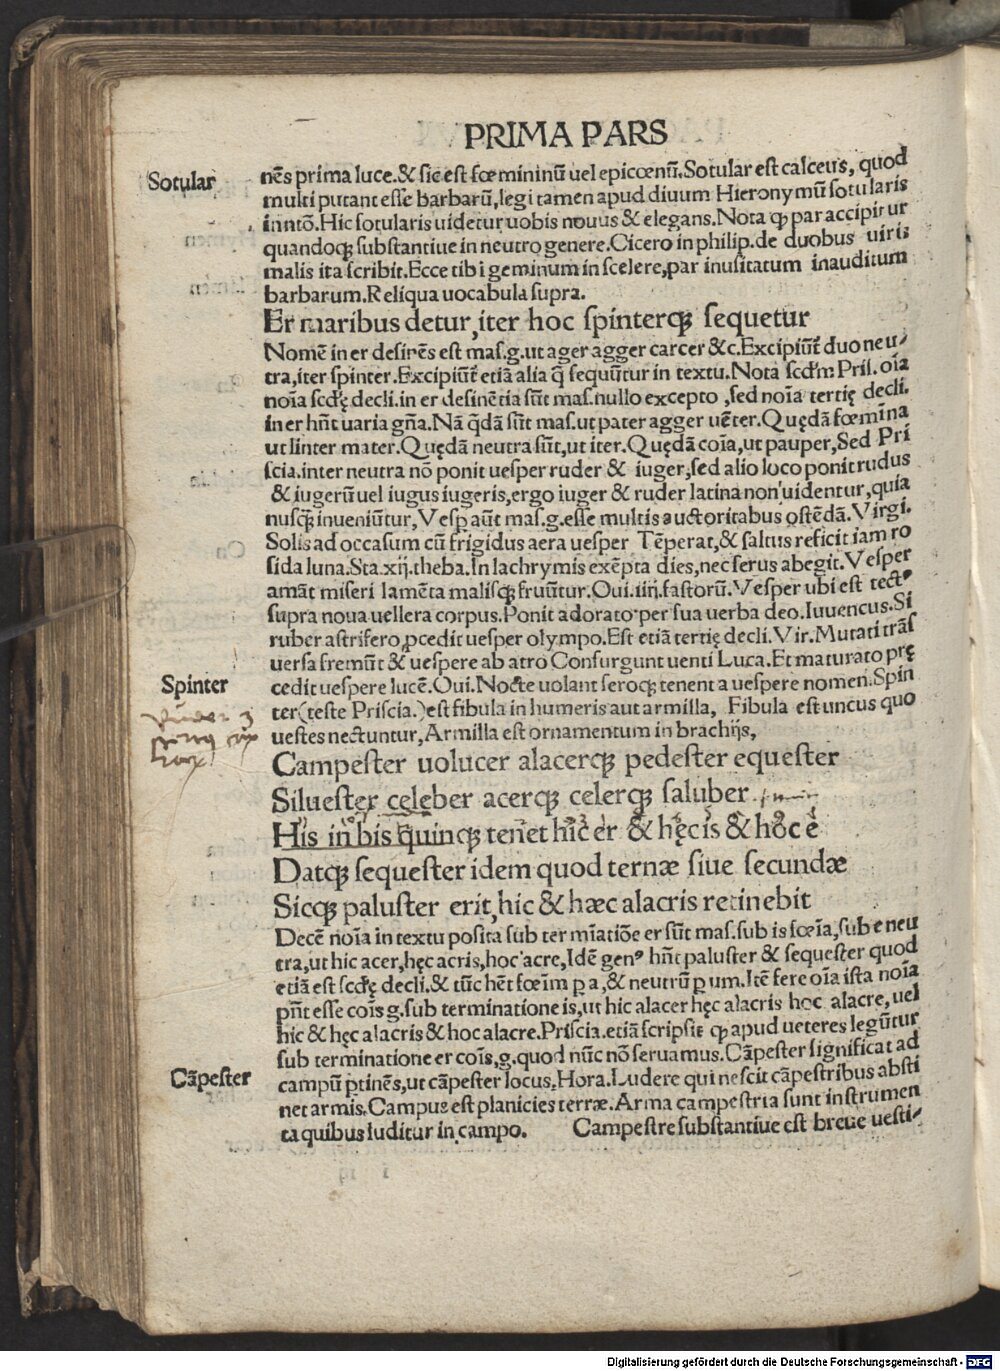 PRIMA PARS
Sotular
nēs prima luce.& sic est fœmininū uel epicœnū.Sotular est calceus, quod
multi putant esse barbarū,legi tamen apud diuum Hieronymū sotularis
in ntō.Hic sotularis uidetur uobis nouus & elegans.Nota ꝙ par accipitur
quandoqꝫ substantiue in neutro genere.Cicero in philip.de duobus uiris
malis ita scribit.Ecce tibi geminum in scelere,par inusitatum inauditum
barbarum.Reliqua uocabula supra.
Er maribus detur,iter hoc spinterqꝫ sequetur
Nomē in er desinēs est mas.g.ut ager agger carcer &c.Excipiūt̃ duo neu-
tra,iter spinter.Excipiūt̃ etiā alia q̄ sequūtur in textu.Nota scd̃m Pris.oīa
noīa scd̃ę decli.in er desinētia sūt mas.nullo excepto ,sed noīa tertię decli.
in er hñt uaria gña.Nā q̄dā sūt mas.ut pater agger uēter.Quędā fœmina
ut linter mater.Quędā neutra sūt,ut iter.Quędā coīa,ut pauper,Sed Pri
scia.inter neutra nō ponit uesper ruder & iuger,sed alio loco ponit rudus
& iugerū uel iugus iugeris,ergo iuger & ruder latina non uidentur,quia
nusqꝫ inueniūtur,Vesꝑ aūt mas.g.esse multis auctoritabus ostēdā.Virgi.
Solis ad occasum cū frigidus aera uesper Tēperat,& saltus reficit iam ro
sida luna.Sta.xij.theba.In lachrymis exēpta dies,nec serus abegit.Vesper
amāt miseri lamēta malisqꝫ fruūtur.Oui.iiij.fastorū.Vesper ubi est tectꝰ
supra noua uellera corpus.Ponit adorato per sua uerba deo.Iuuencus.Si
ruber astrifero,ꝓcedit uesper olympo.Est etiā tertię decli.Vir.Mutati trās
uersa fremūt & uespere ab atro Consurgunt uenti Luca.Et maturato prę
Spinter
cedit uespere lucē.Oui.Nocte uolant seroqꝫ tenent a uespere nomen.Spin
ter(teste Priscia.)est fibula in humeris aut armilla, Fibula est uncus quo
uestes nectuntur,Armilla est ornamentum in brachijs,
Campester uolucer alacerqꝫ pedester equester
Siluester celeber acerqꝫ celerqꝫ saluber
His in bis quinqꝫ tenet hic er & hęc is & hoc e
Datqꝫ sequester idem quod ternæ siue secundæ
Sicqꝫ paluster erit,hic & hæc alacris retinebit
Decē noīa in textu posita sub ter mīatiōe er sūt mas.sub is fœīa,sub e neu
tra,ut hic acer,hęc acris,hoc acre,Idē genꝰ hñt paluster & sequester quod
etiā est scd̃ę decli.& tūc hēt fœīm p a,& neutrū p um.Itē fere oīa ista noīa
pñt esse coīs g.sub terminatione is,ut hic alacer hęc alacris hoc alacre,uel
hic & hęc alacris & hoc alacre.Priscia.etiā scripsit ꝙ apud ueteres legūtur
sub terminatione er coīs,g.quod nūc nō seruamus.Cāpester significat ad
Cāpester
campū ꝑtinēs,ut cāpester locus.Hora.Ludere qui nescit cāpestribus absti
net armis.Campus est planicies terræ.Arma campestria sunt instrumen
ta quibus luditur in campo. Campestre substantiue est breue uesti-
Digitalisierung gefördert durch die Deutsche Forschungsgemeinschaft - DFG